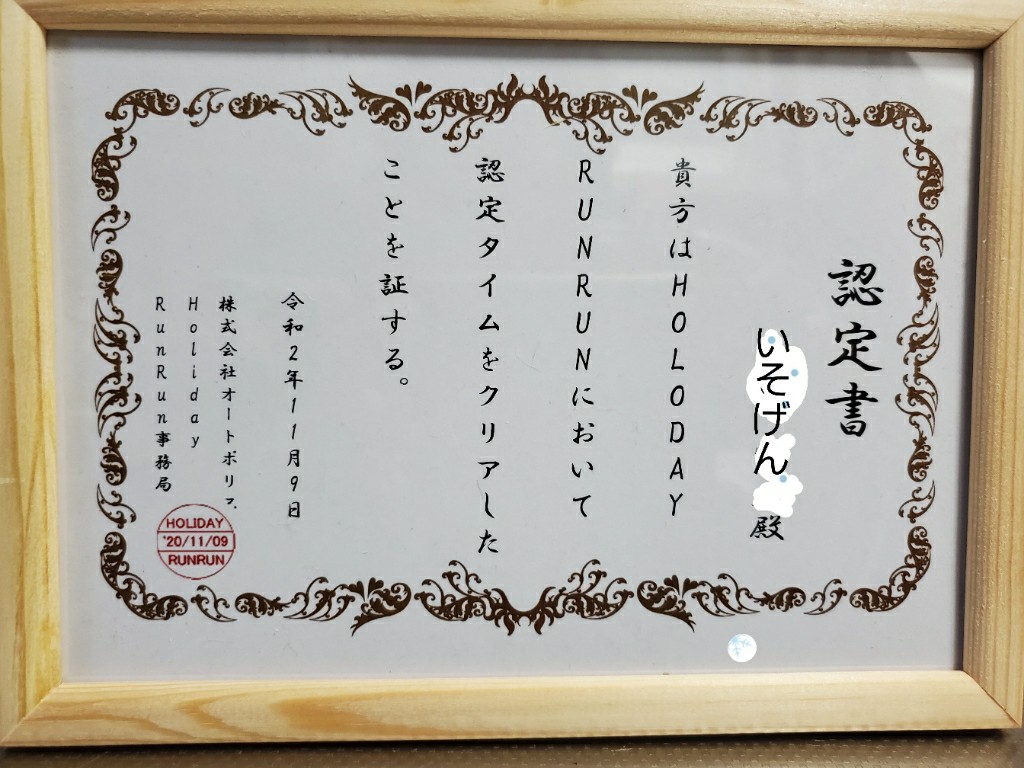 認定書
いそげん 殿
貴方はHOLODAY
RUNRUNにおいて
認定タイムをクリアした
ことを証する。
令和2年11月9日
株式会社オートポリス
Holiday
RunRun事務局
HOLIDAY
'20/11/09
RUNRUN